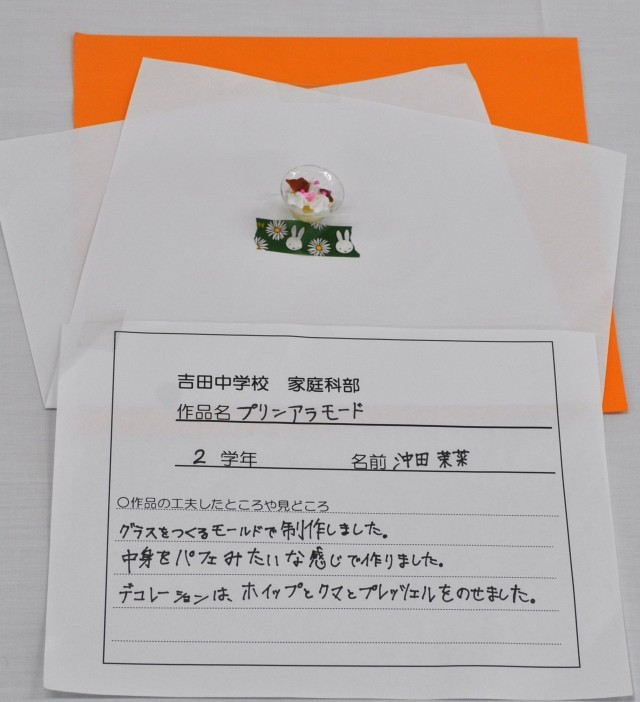 吉田中学校 家庭科部
作品名 プリンアラモード
2 学年 名前 沖田 茉菜
〇作品の工夫したところや見どころ
グラスをつくるモールドで制作しました。
中身をパフェみたいな感じで作りました。
デコレーションは、ホイップとクマとプレッツェルをのせました。